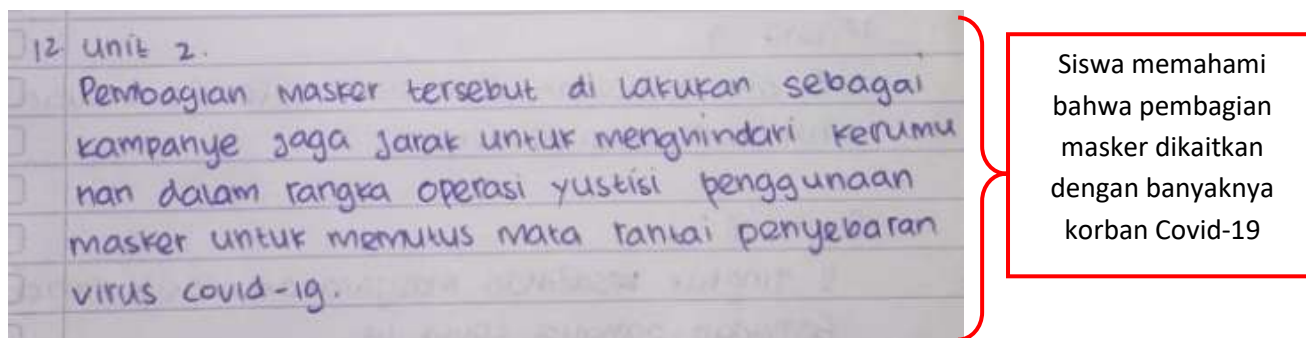 12 unit 2.
Pembagian masker tersebut di lakukan sebagai
kampanye jaga jarak untuk menghindari kerumu
nan dalam rangka operasi yustisi penggunaan
masker untuk memutus mata rantai penyebaran
virus covid-19.
Siswa memahami
bahwa pembagian
masker dikaitkan
dengan banyaknya
korban Covid-19